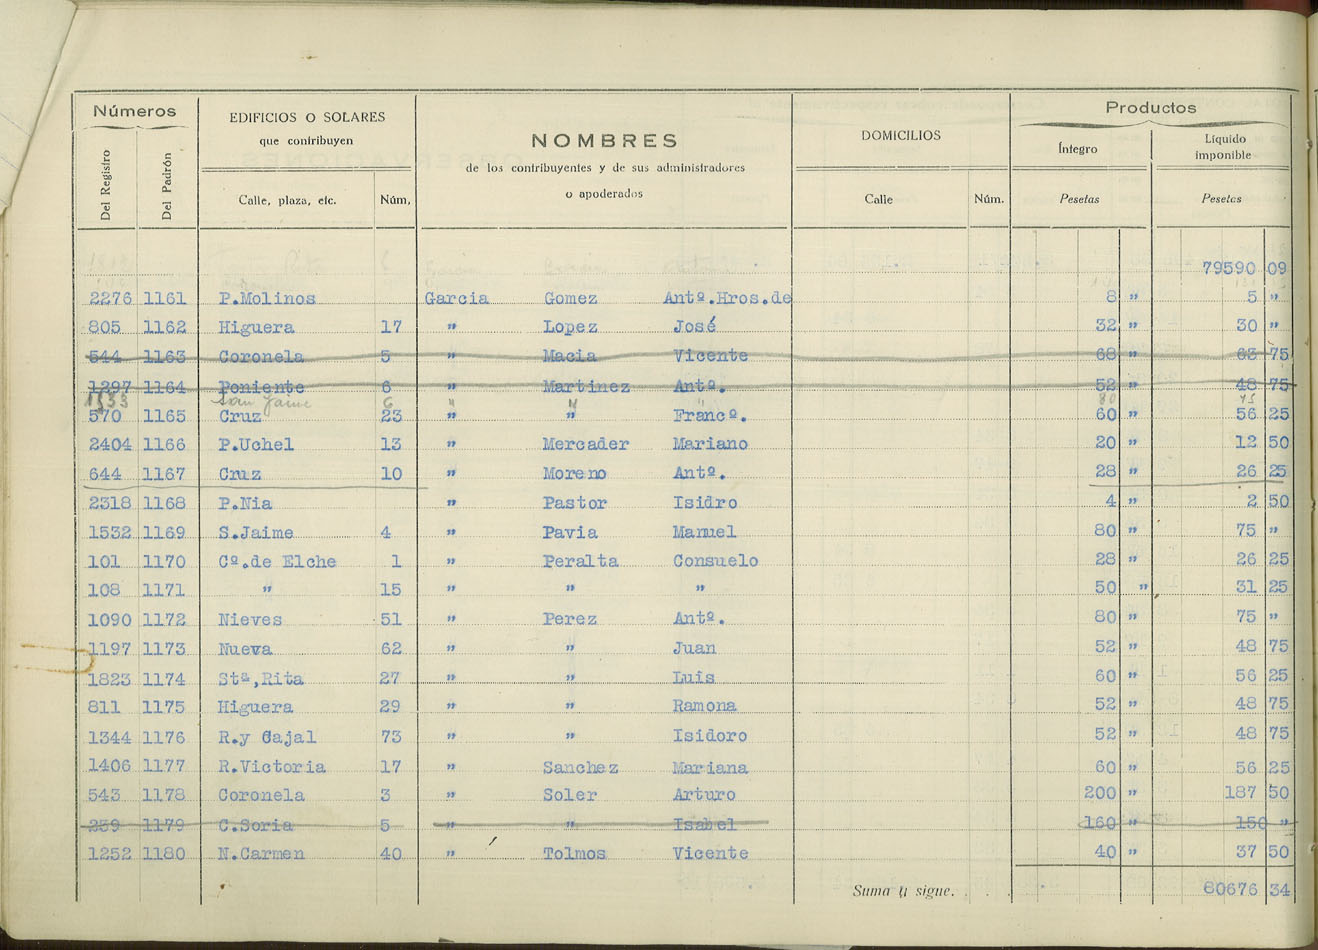 Números EDIFICIOS O SOLARES que contribuyen NOMBRES de los contribuyentes y de sus administradores o apoderados DOMICILIOS Productos
Del Registro Del Padrón Calle, plaza, etc. Núm, Calle Núm. Íntegro Pesetas Líquido imponible Pesetas
79590 09
2276 1161 P.Molinos Garcia Gomez Antº.Hros.de 8 " 5 "
805 1162 Higuera 17 " Lopez José 32 " 30 "
544 1163 Coronela 5 " Macia Vicente 68 " 63 75
1297 1164 Poniente 6 " Martinez Antº. 52 " 48 75
1533 San Jaime 6 " " " 80 75
570 1165 Cruz 23 " " Francº. 60 " 56 25
2404 1166 P.Uchel 13 " Mercader Mariano 20 " 12 50
644 1167 Cruz 10 " Moreno Antº. 28 " 26 25
2318 1168 P.Nia " Pastor Isidro 4 " 2 50
1532 1169 S.Jaime 4 " Pavia Manuel 80 " 75 "
101 1170 Cº.de Elche 1 " Peralta Consuelo 28 " 26 25
108 1171 " 15 " " " 50 " 31 25
1090 1172 Nieves 51 " Perez Antº. 80 " 75 "
1197 1173 Nueva 62 " " Juan 52 " 48 75
1823 1174 Stª,Rita 27 " " Luis 60 " 56 25
811 1175 Higuera 29 " " Ramona 52 " 48 75
1344 1176 R.y Cajal 73 " " Isidoro 52 " 48 75
1406 1177 R.Victoria 17 " Sanchez Mariana 60 " 56 25
543 1178 Coronela 3 " Soler Arturo 200 " 187 50
259 1179 C.Soria 5 " " Isabel 160 " 150 "
1252 1180 N.Carmen 40 " Tolmos Vicente 40 " 37 50
Suma y sigue. . . . 80676 34